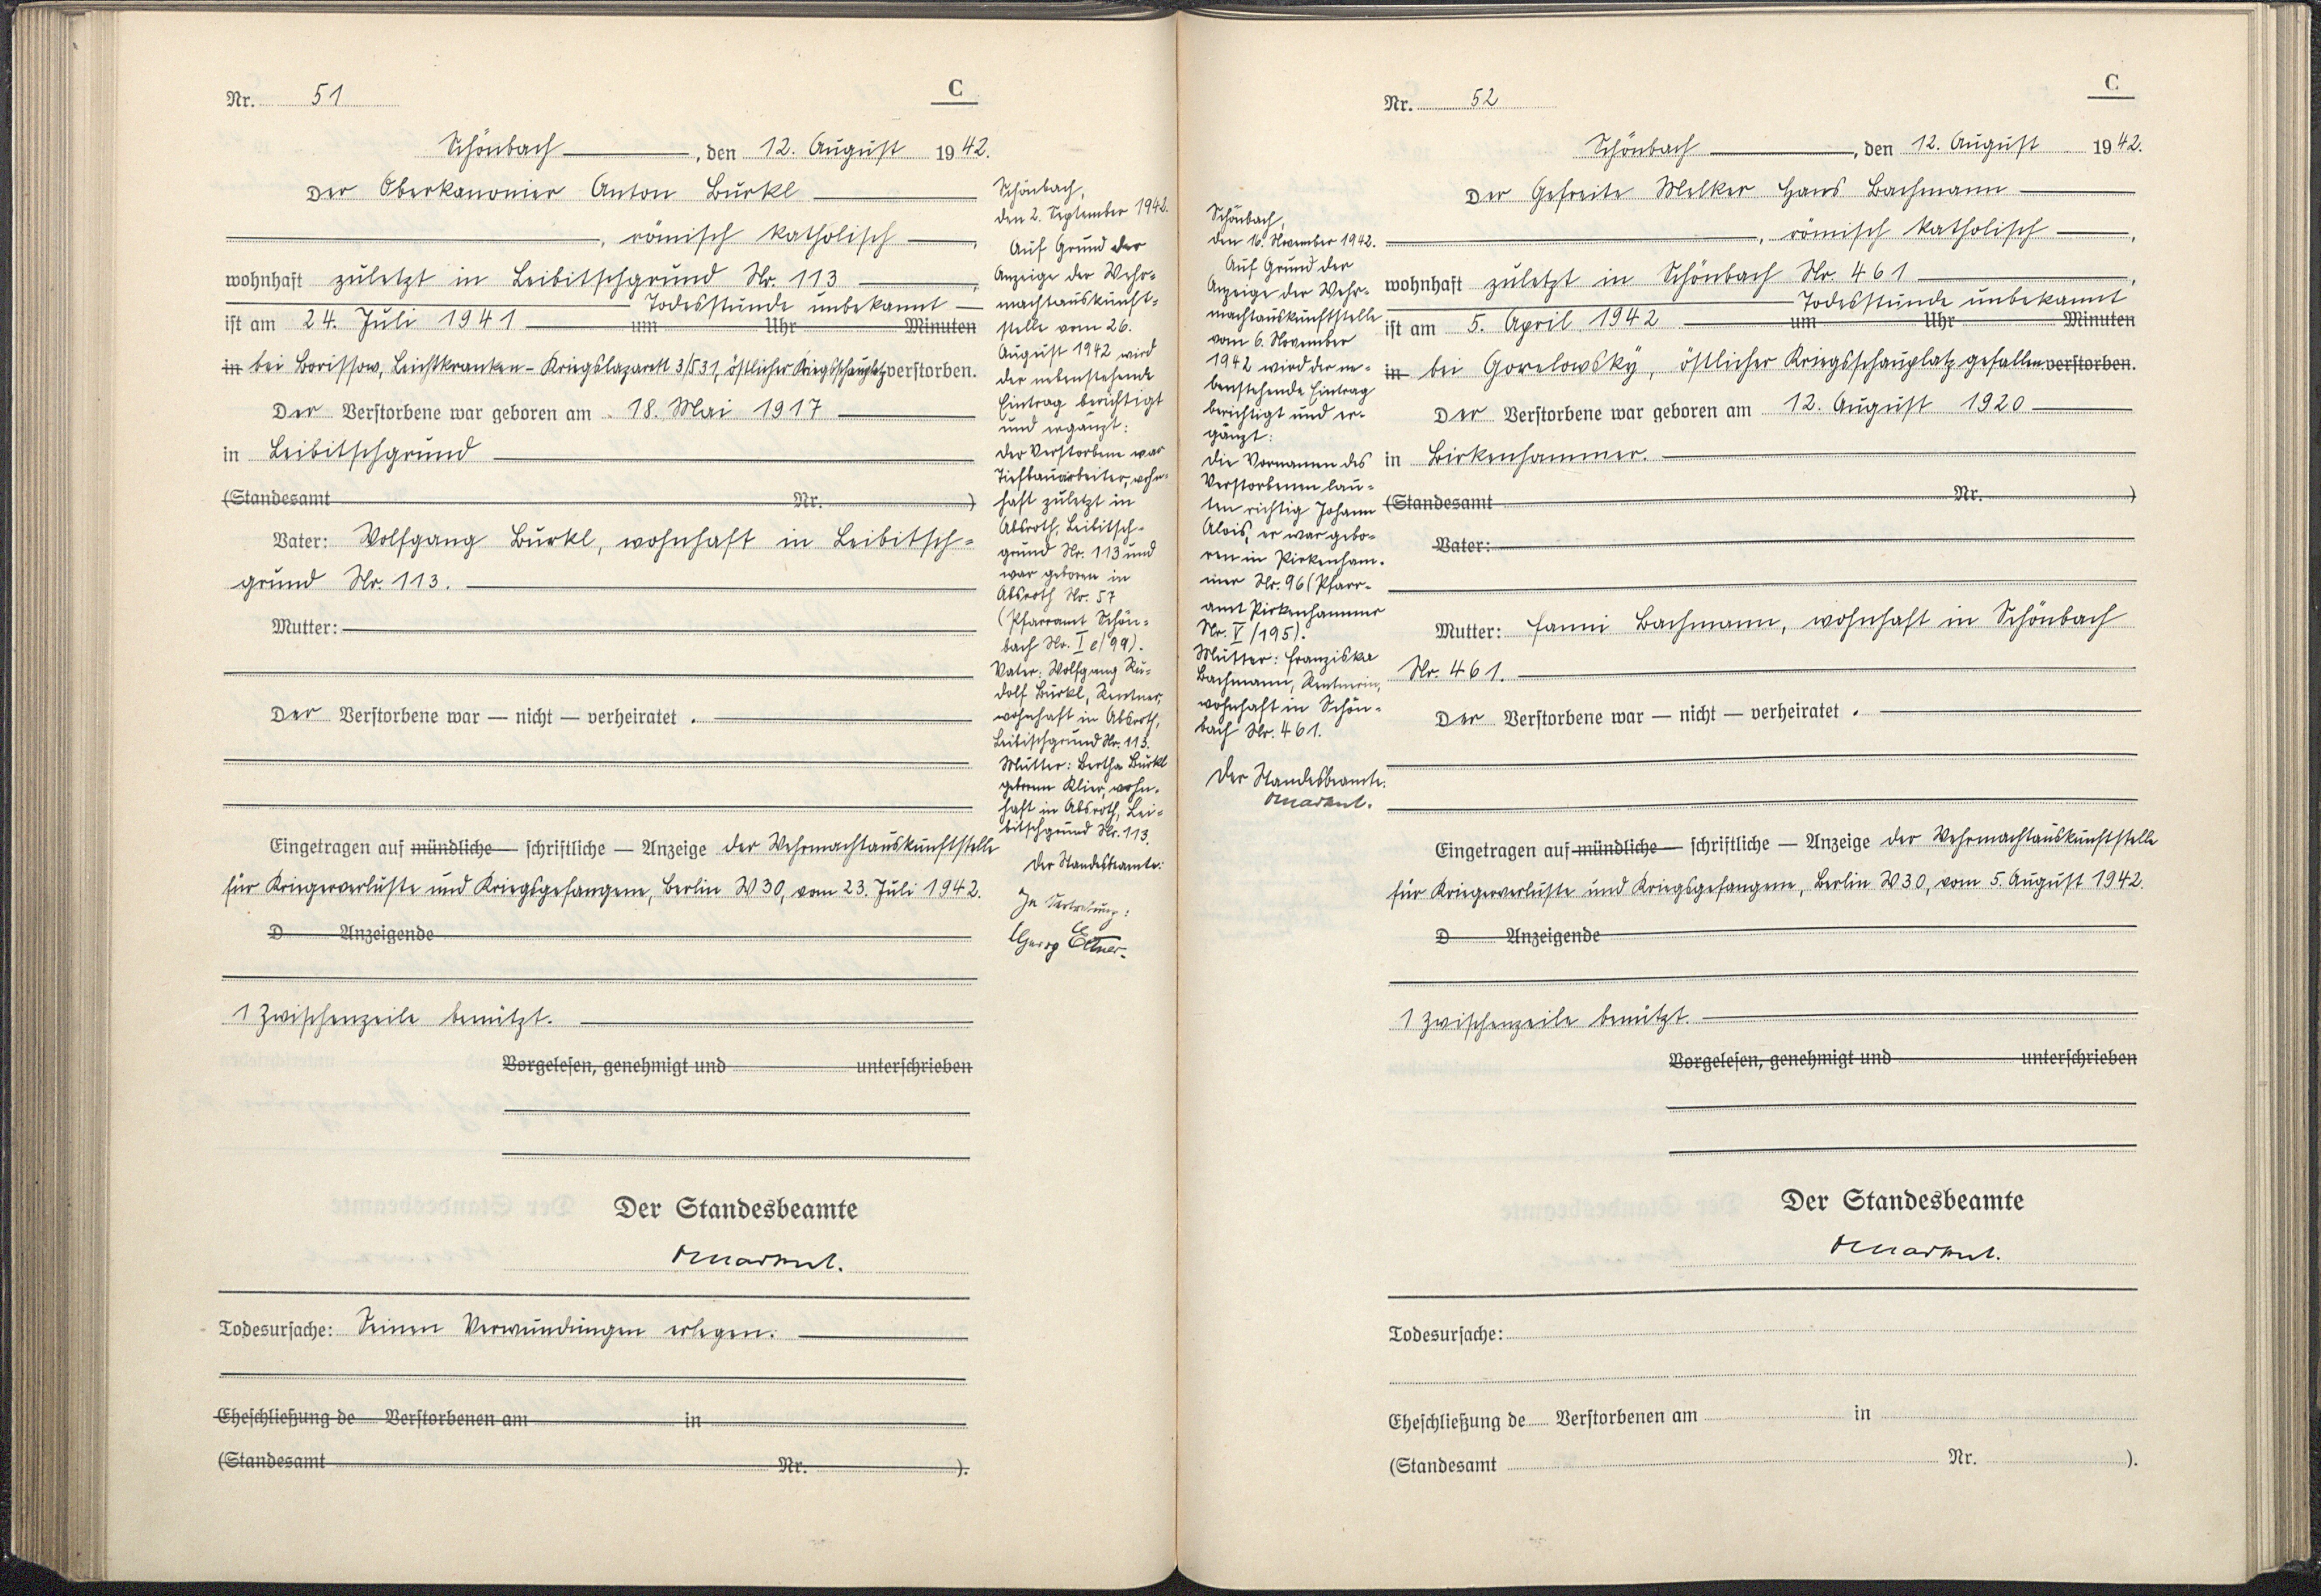 Nr. 51
C
Schönbach, den 12. August 1942.
Der Oberkanonier Anton Bürkl
, römisch katholisch,
wohnhaft zuletzt in Leibitschgrund Nr. 113,
Todesstunde unbekannt
ist am 24. Juli 1941 um Uhr Minuten
in bei Borissow, Leichtkranken-Kriegslazarett 3/531, östlicher Kriegsschauplatz verstorben.
Der Verstorbene war geboren am 18. Mai 1917
in Leibitschgrund
(Standesamt Nr. )
Vater: Wolfgang Bürkl, wohnhaft in Leibitsch-
grund Nr. 113.
Mutter:
Der Verstorbene war — nicht — verheiratet.
Eingetragen auf mündliche — schriftliche — Anzeige der Wehrmachtauskunftstelle
für Kriegerverluste und Kriegsgefangene, Berlin W 30, vom 23. Juli 1942.
D Anzeigende
1 Zwischenzeile benützt.
Vorgelesen, genehmigt und unterschrieben
Der Standesbeamte
Todesursache: Seinen Verwundungen erlegen.
Eheschließung de Verstorbenen am in
(Standesamt Nr. ).
Schönbach,
den 2. September 1942.
Auf Grund der
Anzeige der Wehr-
machtauskunft-
stelle vom 26.
August 1942 wird
der nebenstehende
Eintrag berichtigt
und ergänzt:
der Verstorbene war
Tiefbauarbeiter, wohn-
haft zuletzt in
Absroth, Leibitsch-
grund Nr. 113 und
war geboren in
Absroth Nr. 57
(Pfarramt Schön-
bach Nr. I e/99).
Vater: Wolfgang Ru-
dolf Bürkl, Rentner,
wohnhaft in Absroth,
Leibitschgrund Nr. 113.
Mutter: Bertha Bürkl
geborene Klier, wohn-
haft in Absroth, Lei-
bitschgrund Nr. 113.
Der Standesbeamte:
In Vertretung:
Georg
Nr. 52
C
Schönbach, den 12. August 1942.
Der Gefreite Melker Hans Bachmann
, römisch katholisch,
wohnhaft zuletzt in Schönbach Nr. 461,
Todesstunde unbekannt
ist am 5. April 1942 um Uhr Minuten
in bei Gorelowsky, östlicher Kriegsschauplatz gefallen verstorben.
Der Verstorbene war geboren am 12. August 1920
in Birkenhammer.
(Standesamt Nr. )
Vater:
Mutter: Fanni Bachmann, wohnhaft in Schönbach
Nr. 461.
Der Verstorbene war — nicht — verheiratet.
Eingetragen auf mündliche — schriftliche — Anzeige der Wehrmachtauskunftstelle
für Kriegerverluste und Kriegsgefangene, Berlin W 30, vom 5. August 1942.
D Anzeigende
1 Zwischenzeile benützt.
Vorgelesen, genehmigt und unterschrieben
Der Standesbeamte
Todesursache:
Eheschließung de Verstorbenen am in
(Standesamt Nr. ).
Schönbach,
den 16. November 1942.
Auf Grund der
Anzeige der Wehr-
machtauskunftstelle
vom 6. November
1942 wird der ne-
benstehende Eintrag
berichtigt und er-
gänzt:
die Vornamen des
Verstorbenen lau-
ten richtig Johann
Alois, er war gebo-
ren in Pirkenham-
mer Nr. 96 (Pfarr-
amt Pirkenhammer
Nr. V/195).
Mutter: Franziska
Bachmann, Rentnerin,
wohnhaft in Schön-
bach Nr. 461.
Der Standesbeamte: